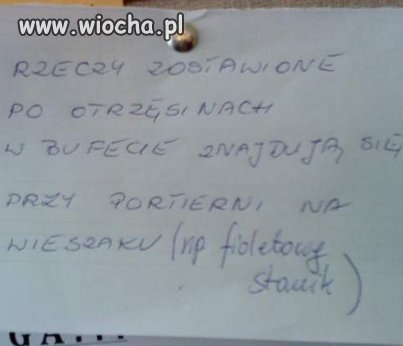 www.wiocha.pl
RZECZY ZOSTAWIONE
PO OTRZĘSINACH
W BUFECIE ZNAJDUJĄ SIĘ
PRZY PORTIERNI NA
WIESZAKU (np fioletowy
stanik)
GA...